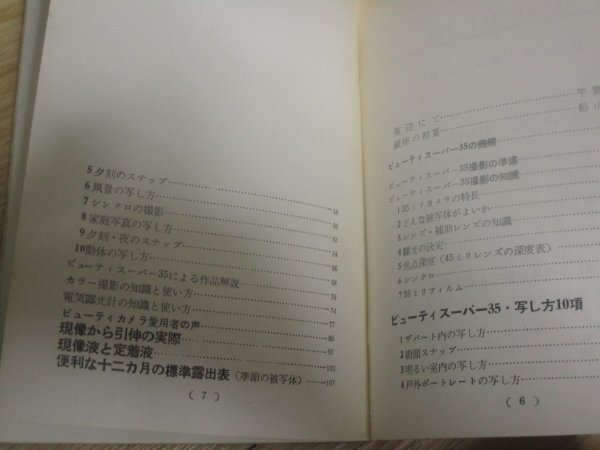 海辺にて
銀座の初夏
ビューティスーパー35の機構
ビューティスーパー35撮影の準備
ビューティスーパー35撮影の知識
1 35ミリカメラの特長
2 どんな被写体がよいか
3 レンズ・補助レンズの知識
4 露光の決定
5 焦点深度(45ミリレンズの深度表)
6 シンクロ
7 35ミリフィルム
ビューティスーパー35・写し方10項
1 デパート内の写し方
2 街頭スナップ
3 明るい室内の写し方
4 戸外ポートレートの写し方
( 6 )
5 夕刻のスナップ
6 風景の写し方 58
7 シンクロの撮影 60
8 家庭写真の写し方 62
9 夕刻・夜のスナップ 64
10 動体の写し方 66
ビューティスーパー35による作品解説 68
カラー撮影の知識と使い方 70
電気露光計の知識と使い方 74
ビューティカメラ愛用者の声 77
現像から引伸の実際 80
現像液と定着液 105
便利な十二カ月の標準露出表(季節の被写体) 107
( 7 )